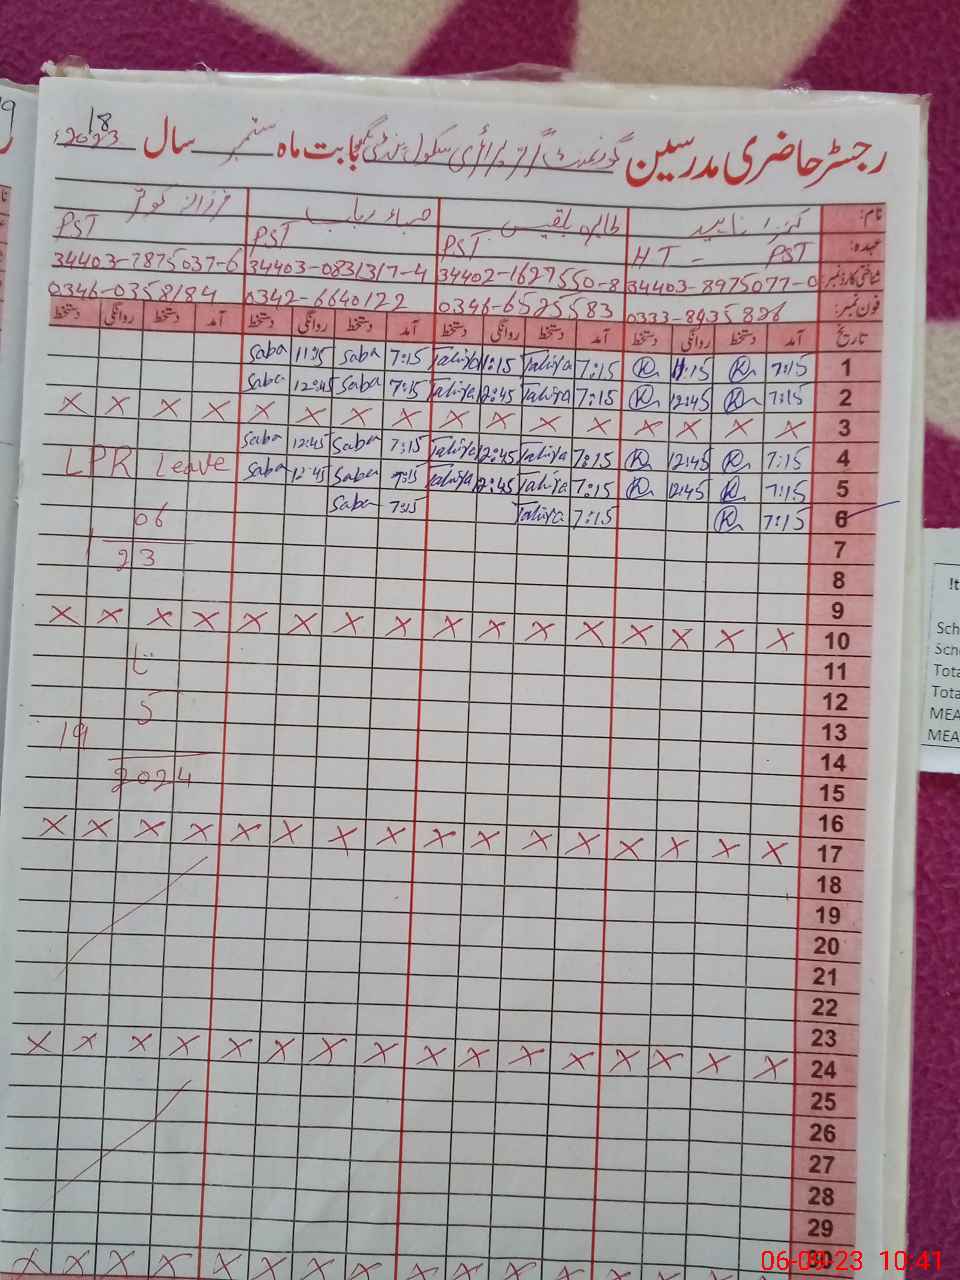 رجسٹر حاضری مدرسین گورنمنٹ گرلز پرائمری سکول بابت ماہ ستمبر سال 2023ء
18
نام: کنیزا ناہید طاہرہ بلقیس صباء رباب فرزانہ کوثر
عہدہ: PST - HT PST PST PST
شناختی کارڈ نمبر 34403-8975077-0 34402-1627550-8 34403-0831317-4 34403-7875037-6
فون نمبر: 0333-8435826 0346-6525583 0342-6640122 0346-0358184
تاریخ آمد دستخط روانگی دستخط آمد دستخط روانگی دستخط آمد دستخط روانگی دستخط آمد دستخط روانگی دستخط
1 7:15 11:15 7:15 Tahira 11:15 Tahira 7:15 Saba 11:15 Saba
2 7:15 12:45 7:15 Tahira 12:45 Tahira 7:15 Saba 12:45 Saba
3 x x x x x x x x x x x x x x x x
4 7:15 12:45 7:15 Tahira 12:45 Tahira 7:15 Saba 12:45 Saba
5 7:15 12:45 7:15 Tahira 12:45 Tahira 7:15 Saba 12:45 Saba LPR Leave
6 7:15 7:15 Tahira 7:15 Saba
06
7
1 23
8
9
10 x x x x x x x x x x x x x x x x
11
تا
12
5
13
19
14
2024
15
16
17 x x x x x x x x x x x x x x x x
18
19
20
21
22
23
24 x x x x x x x x x x x x x x x x
25
26
27
28
29
30
!t
Sch
Sch
Tota
Tota
MEA
MEA
06-09-23 10:41